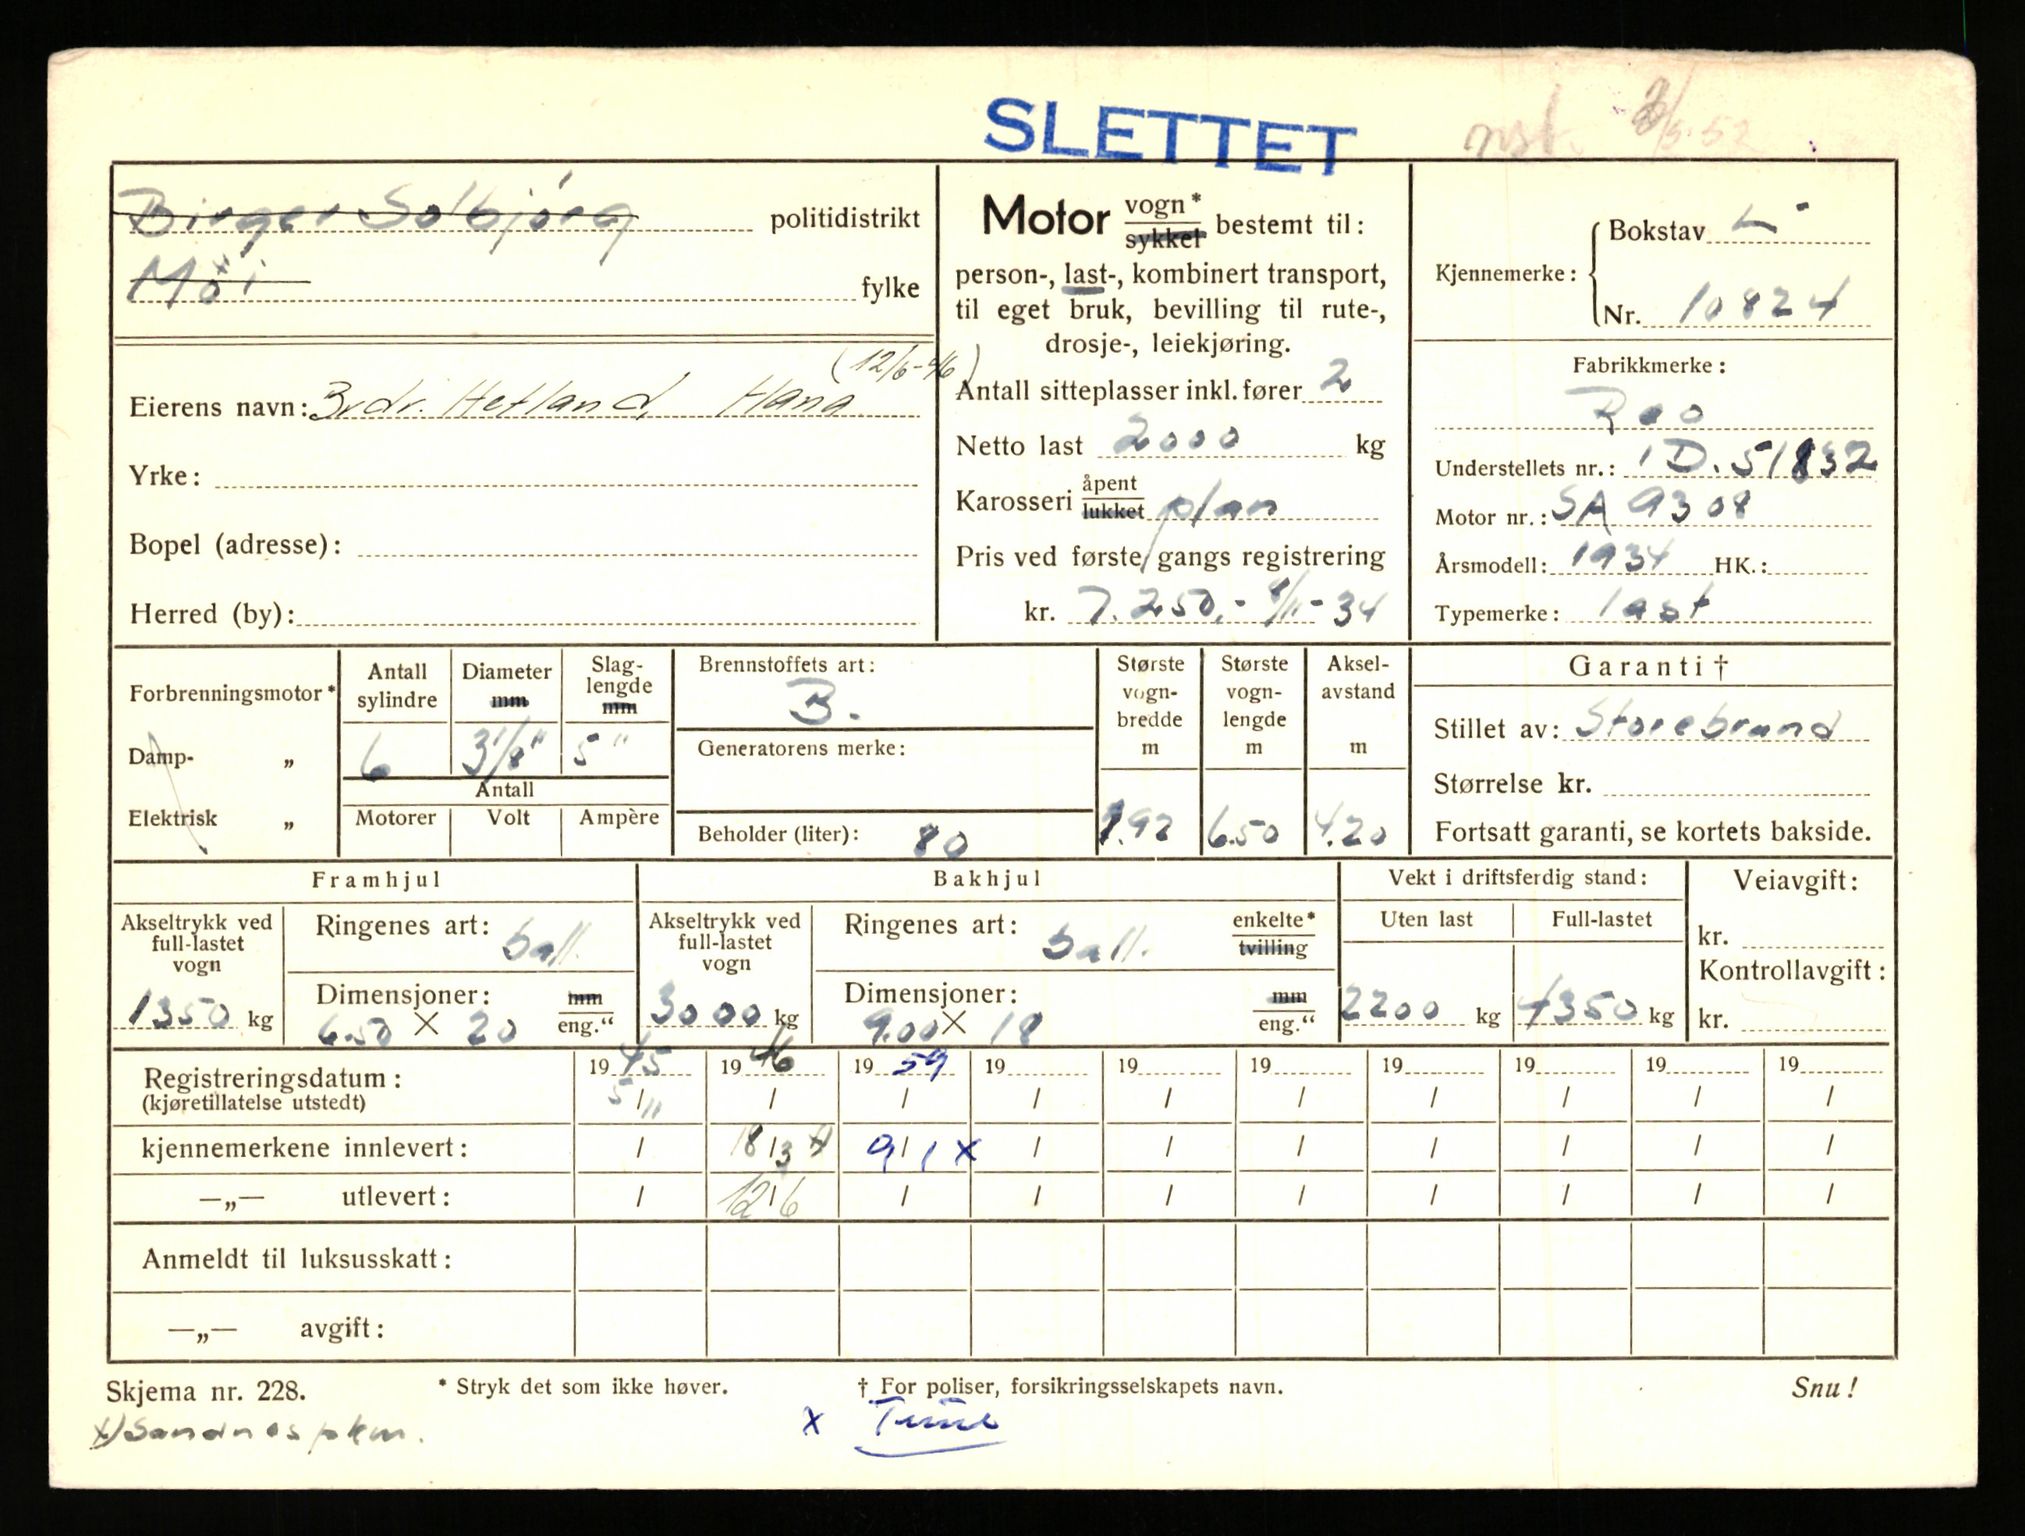 SLETTET
Birger Solbjörg politidistrikt
Möi fylke
(12/6-46)
Eierens navn: Brdr. Hetland, Hana
Yrke:
Bopel (adresse):
Herred (by):
Motor vogn* sykkel bestemt til:
person-, last-, kombinert transport,
til eget bruk, bevilling til rute-,
drosje-, leiekjøring.
Antall sitteplasser inkl. fører 2
Netto last 2000 kg
Karosseri åpent lukket plan
Pris ved første gangs registrering
kr. 7.250,- 8/11-34
Kjennemerke: Bokstav L-
Nr. 10824
Fabrikkmerke:
Reo
Understellets nr.: 1D.51832
Motor nr.: SA 9308
Årsmodell: 1934 HK.:
Typemerke: last
Forbrenningsmotor*
Damp- „
Elektrisk „
Antall sylindre Diameter mm Slag-lengde mm
6 3 1/8" 5"
Antall
Motorer Volt Ampère
Brennstoffets art:
B.
Generatorens merke:
Beholder (liter): 80
Største vogn-bredde m 1.92
Største vogn-lengde m 6.50
Aksel-avstand m 4.20
Garanti †
Stillet av: Storebrand
Størrelse kr.
Fortsatt garanti, se kortets bakside.
Framhjul
Akseltrykk ved full-lastet vogn
1350 kg
Ringenes art: ball.
Dimensjoner: mm
6.50 X 20 eng.“
Bakhjul
Akseltrykk ved full-lastet vogn
3000 kg
Ringenes art: ball. enkelte* tvilling
Dimensjoner: mm
9.00 X 18 eng.“
Vekt i driftsferdig stand:
Uten last Full-lastet
2200 kg 4350 kg
Veiavgift:
kr.
Kontrollavgift:
kr.
Registreringsdatum: 19 45 19 46 19 59 19 19 19 19 19 19 19
(kjøretillatelse utstedt) 5/11 / / / / / / / / /
kjennemerkene innlevert: / 18/3 x 9/1 x / / / / / / /
—„— utlevert: / 12/6 / / / / / / / /
Anmeldt til luksusskatt:
—„— avgift:
Skjema nr. 228. * Stryk det som ikke høver. † For poliser, forsikringsselskapets navn. Snu!
x) Sandnes pkm. x